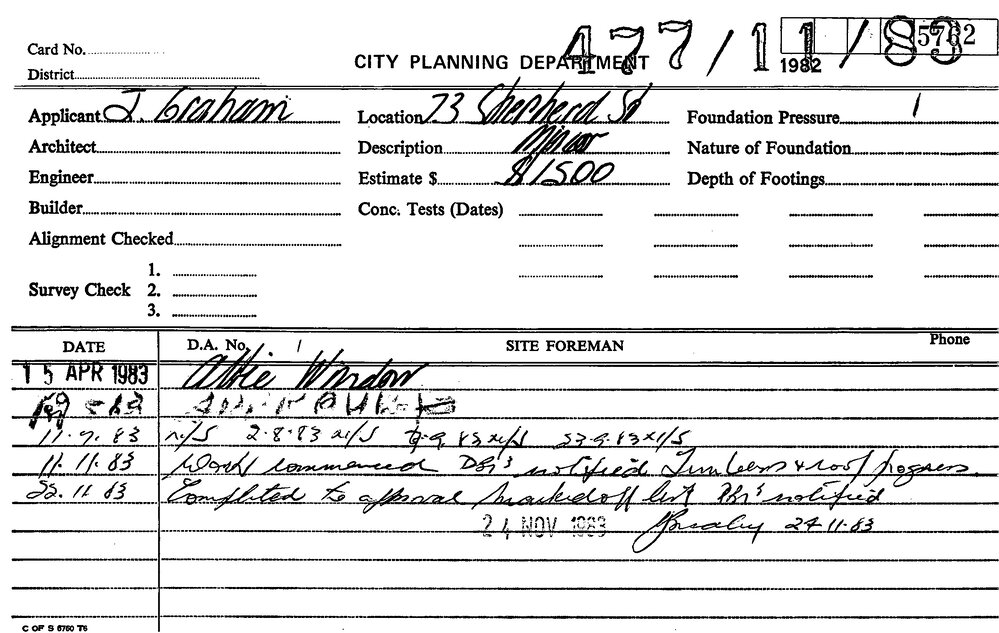 477/11/83
5762
Card No.
CITY PLANNING DEPARTMENT 1982
District
Applicant J. Graham Location 73 Shepherd St Foundation Pressure
Architect Description Minor Nature of Foundation
Engineer Estimate $ $1500 Depth of Footings
Builder Conc. Tests (Dates)
Alignment Checked
1.
Survey Check 2.
3.
DATE D.A. No. SITE FOREMAN Phone
15 APR 1983 Attic Window
11.7.83 n/S 2.8.83 n/S 83 n/S 23.9.83 n/S
11.11.83 Work commenced notified Timbers & roof progress
22.11.83 Completed to approval marked off list notified
24 NOV 1983 24.11.83
C OF S 6760 T6